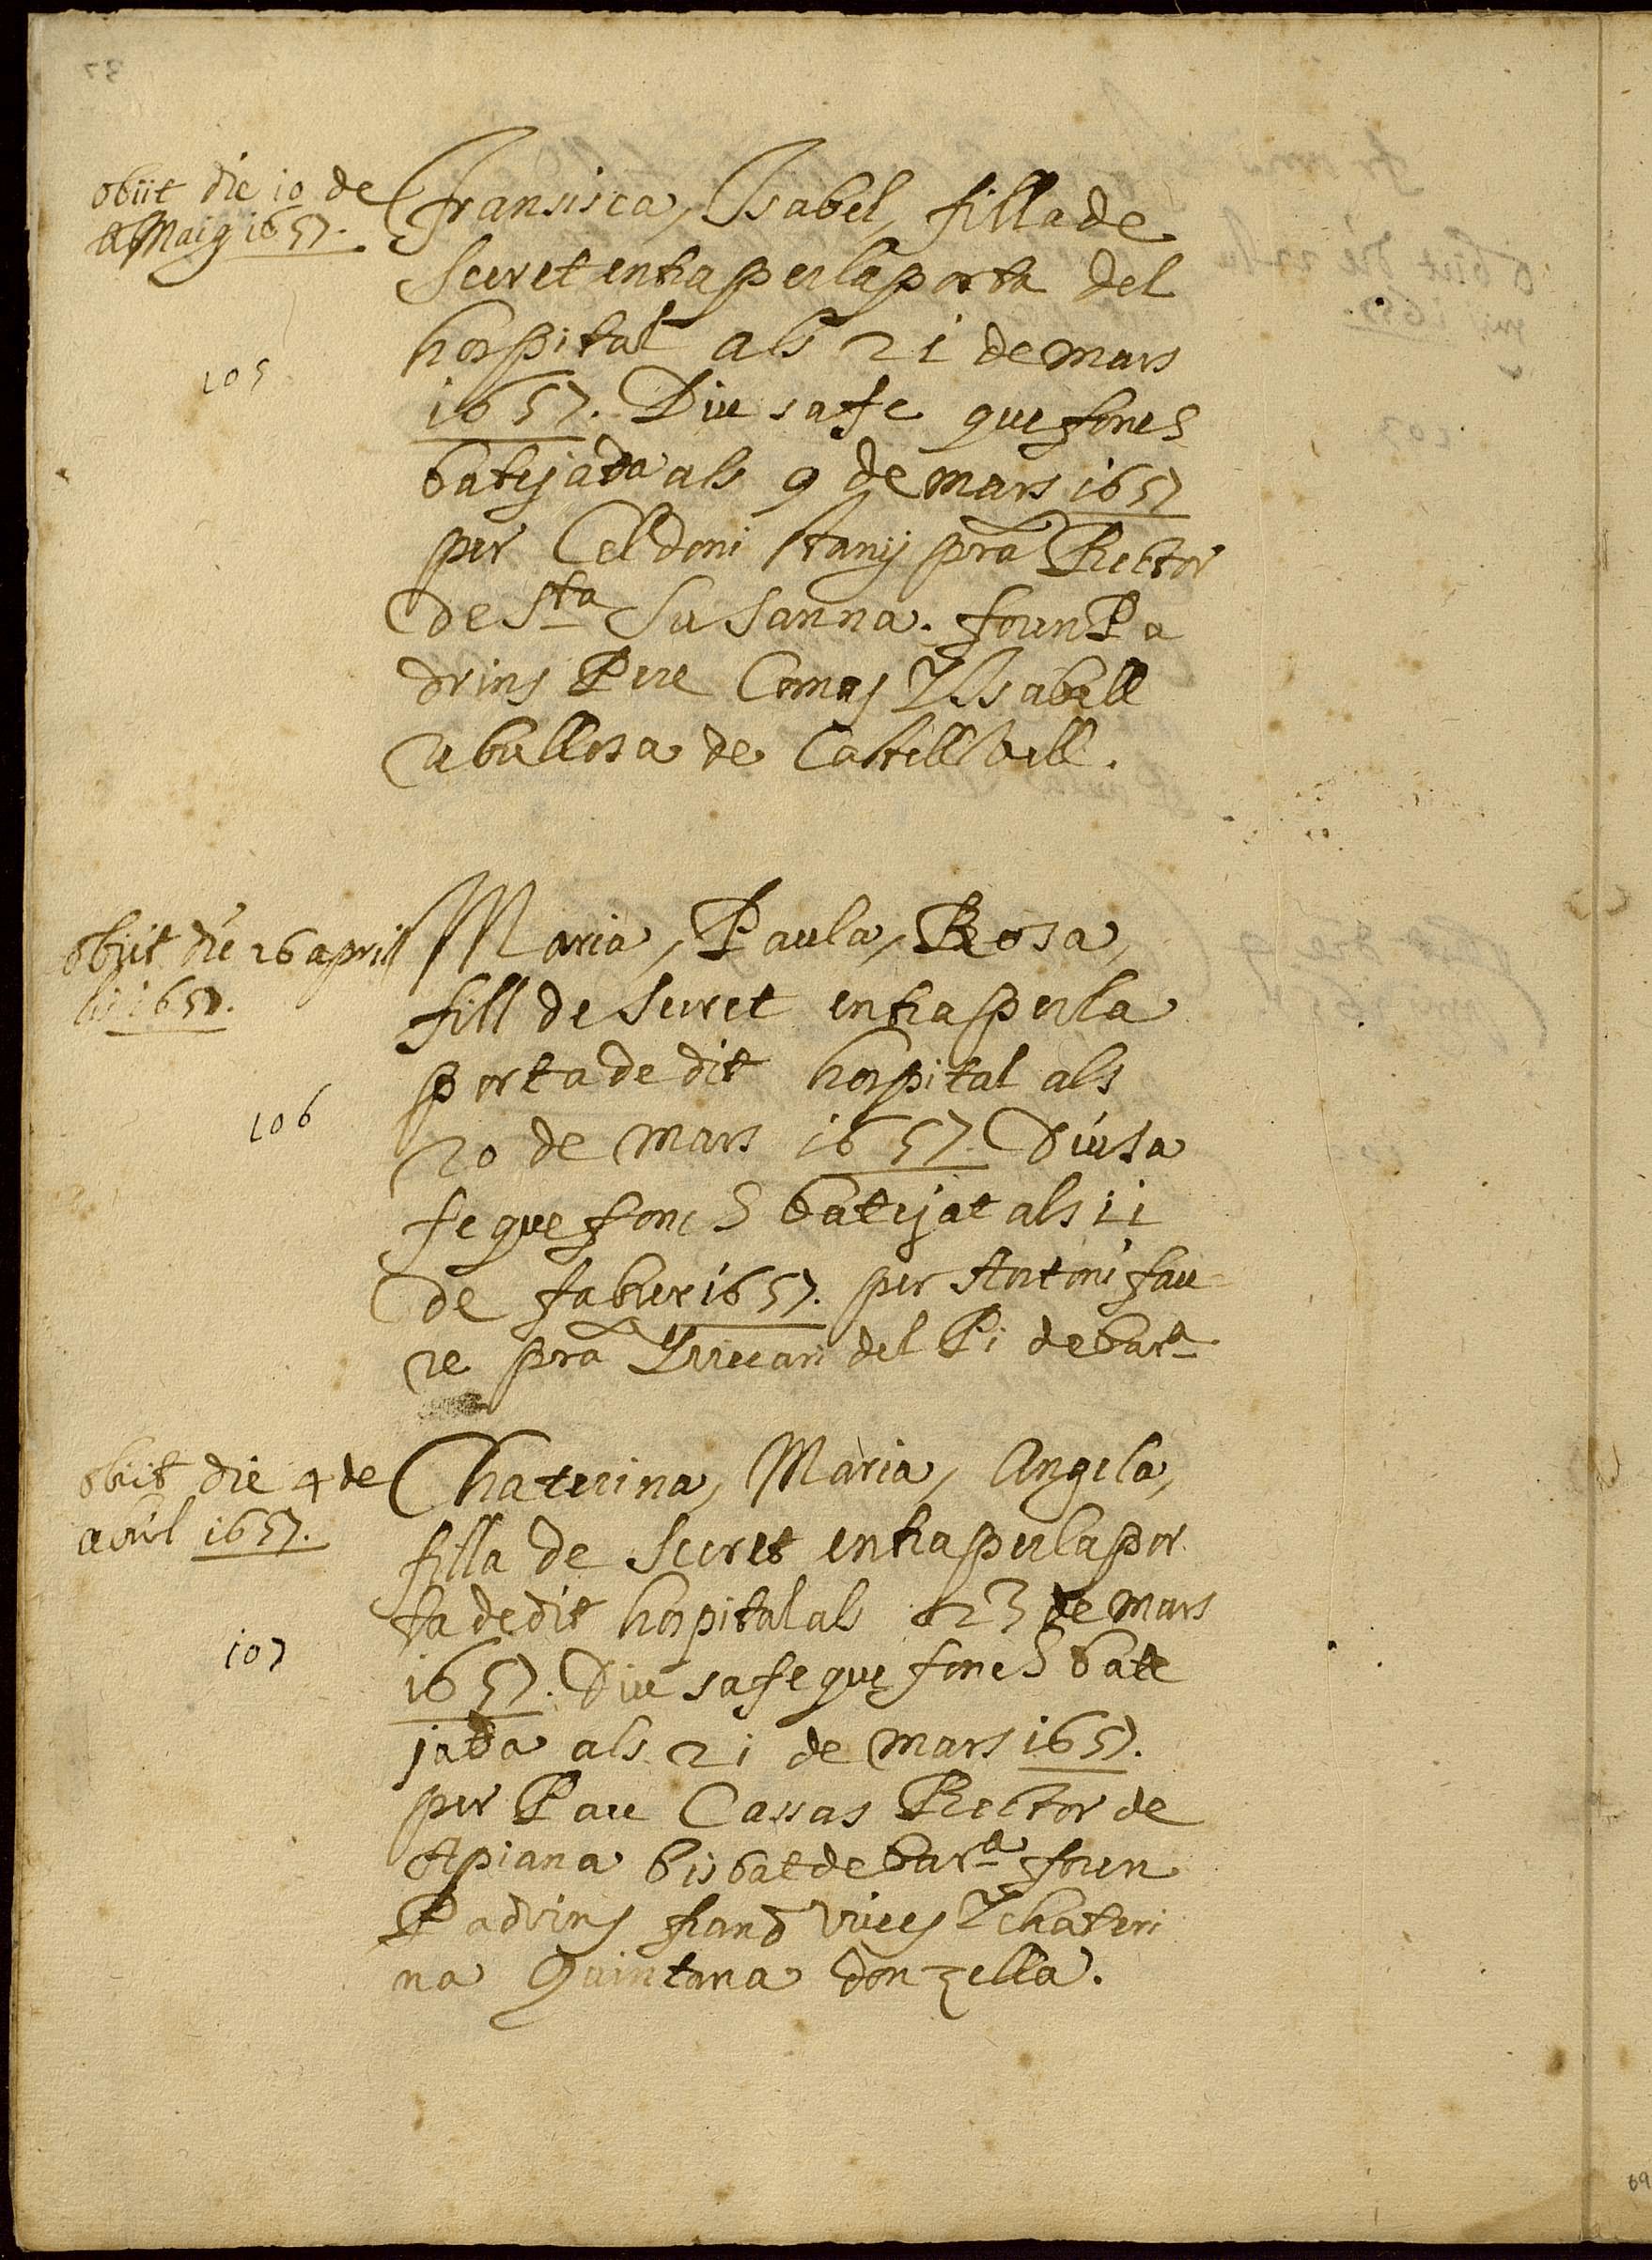 obiit die 10 de
Maig 1657.
105
Fransisca, Isabel, filla de
secret entra per la porta del
hospital als 21 de mars
1657. Diu sa fe que fonch
batejada als 9 de mars 1657
per Celdoni stanÿ pra Rector
de Sta Susanna. foren Pa
drins Pere Comas Y Isabell
de Castellvell.
obiit die 26 aprill
lis 1657.
106
Maria, Paula, Rosa,
fill de secret entra per la
porta de dit hospital als
20 de mars 1657. Diu sa
fe que fonch batejat als 11
de fabrer 1657. per Antoni fau
re pra Y vicari del Pi de bara
obiit die 4 de
abril 1657.
107
Chaterina, Maria, Angela,
filla de secret entra per la por
ta de dit hospital als 23 de mars
1657. Diu sa fe que fonch bate
jada als 21 de mars 1657.
per Pau Cassas Rector de
Apiana bisbat de bara foren
Padrins Vives Y chateri
na Quintana donzella.
69